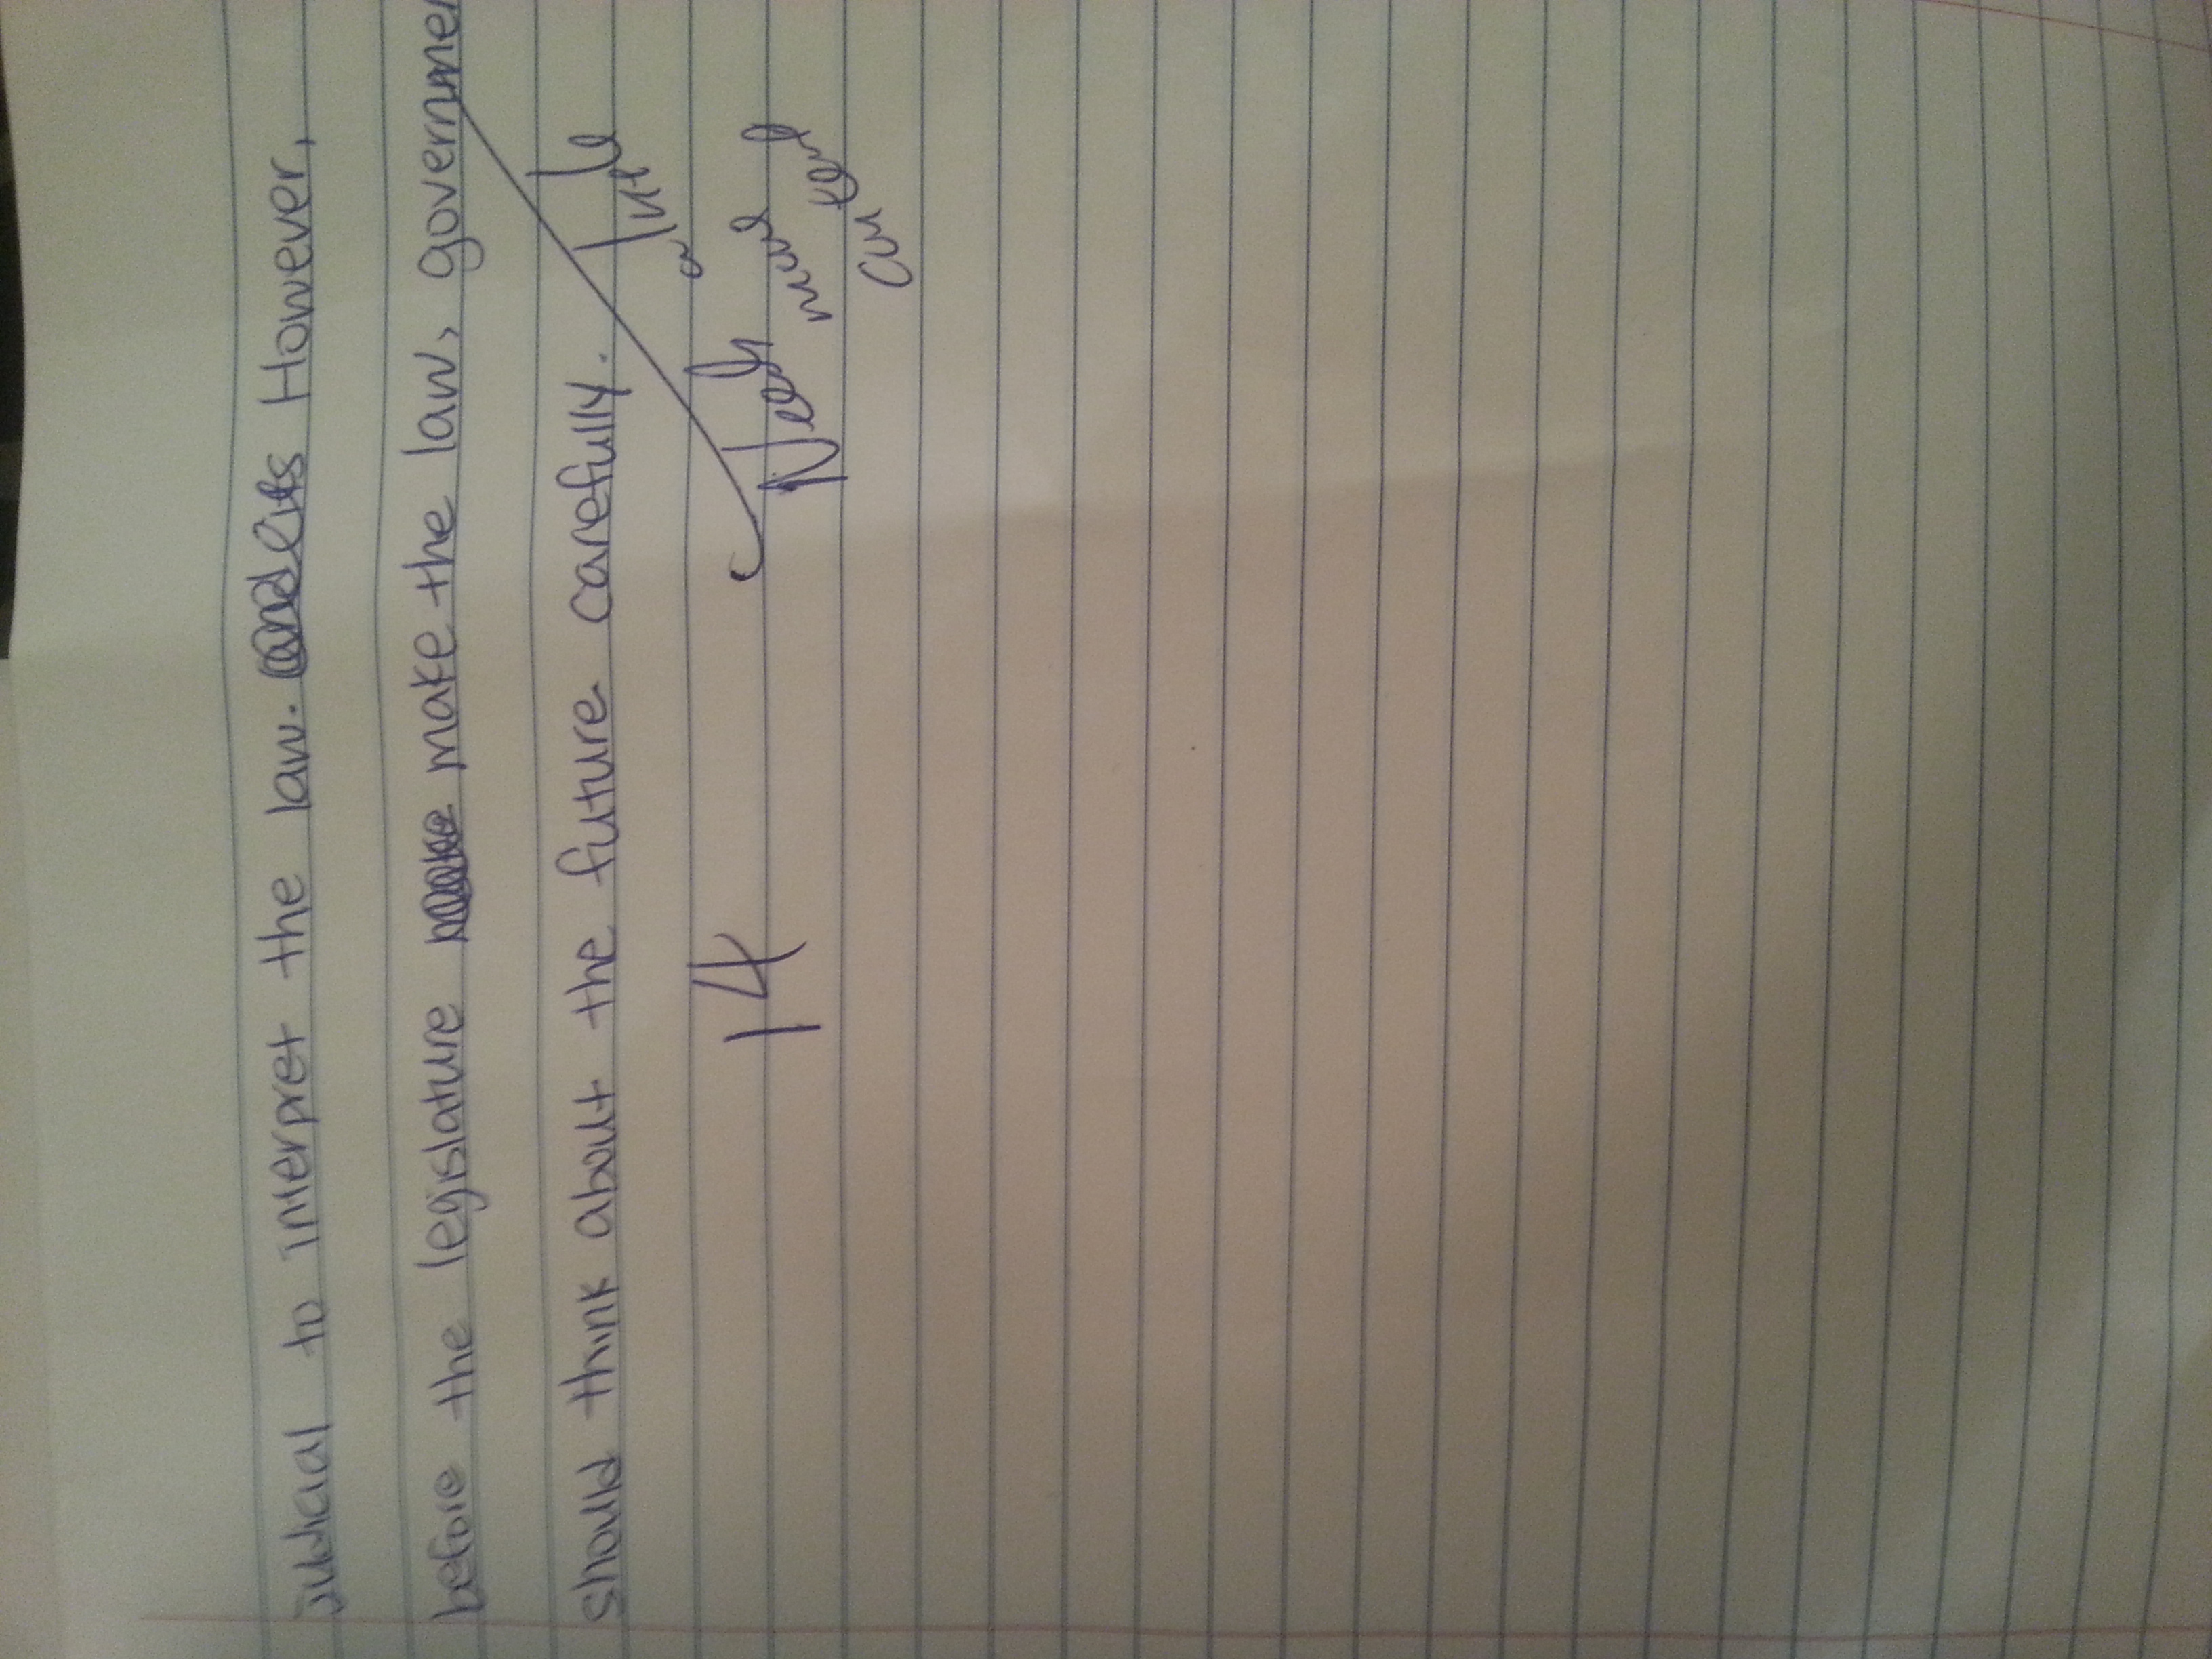 judicial to interpret the law. However,
before the legislature make the law, governmen
should think about the future carefully.
14
a little
Needs
more